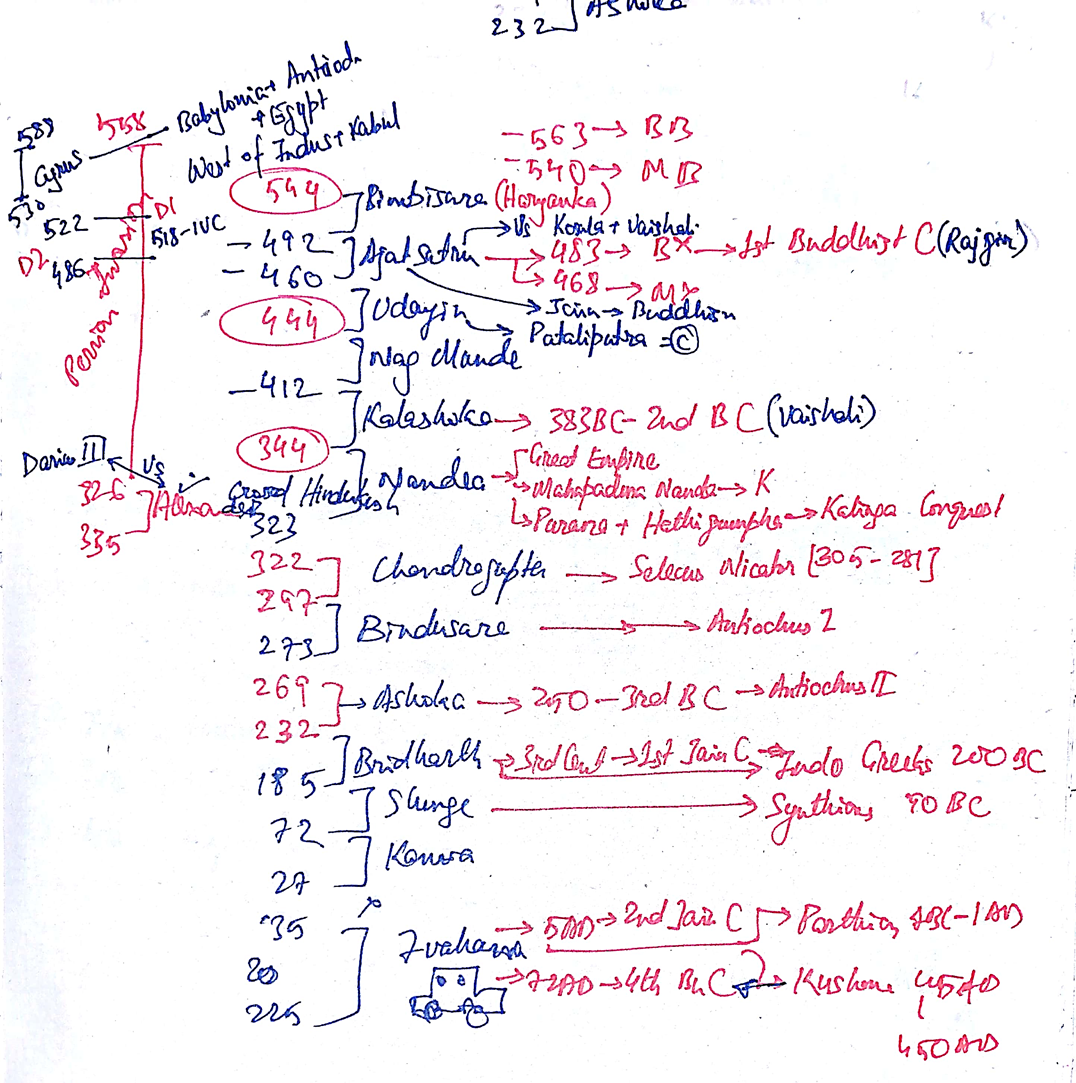 232] Ashoka
Babylonia+ Antiod
+ Egypt
West of Indus + Kabul
589
558
Cyrus
530
522
D1
518-IVC
D2
486
Persian Invasion
- 563 → BB
- 540 → MB
544
Bimbisara (Haryanka)
- 492
→ Vs Kosala + Vaishali
Ajatsatru → 483 → BX → 1st Buddhist C (Rajgir)
- 460
↳ 468 → MX
→ Jain → Buddhism
444
Udayin
Pataliputra = ©
Nag Mande
- 412
Kalashoka → 383BC - 2nd BC (Vaishali)
344
Darius III
Vs
326
335
Alexander
Crossed Hindukush
Nandea → Great Empire
↳ Mahapadma Nanda → K
↳ Purana + Hathigumpha → Kalinga Conquest
323
322
Chandragupta → Selecus Nicator [305-281]
297
Bindusare → Antiochus 2
273
269
Ashoka → 250 - 3rd BC → Antiochus II
232
Bridharth → 3rd Cent → 1st Jain C → Indo Greeks 200 BC
185
Shunge → Synthions 90 BC
72
Kanwa
27
35
→ 5AD → 2nd Jain C → Parthian 1BC-1AD
20
→ 72AD → 4th Bu C → Kushana 45AD
225
450AD